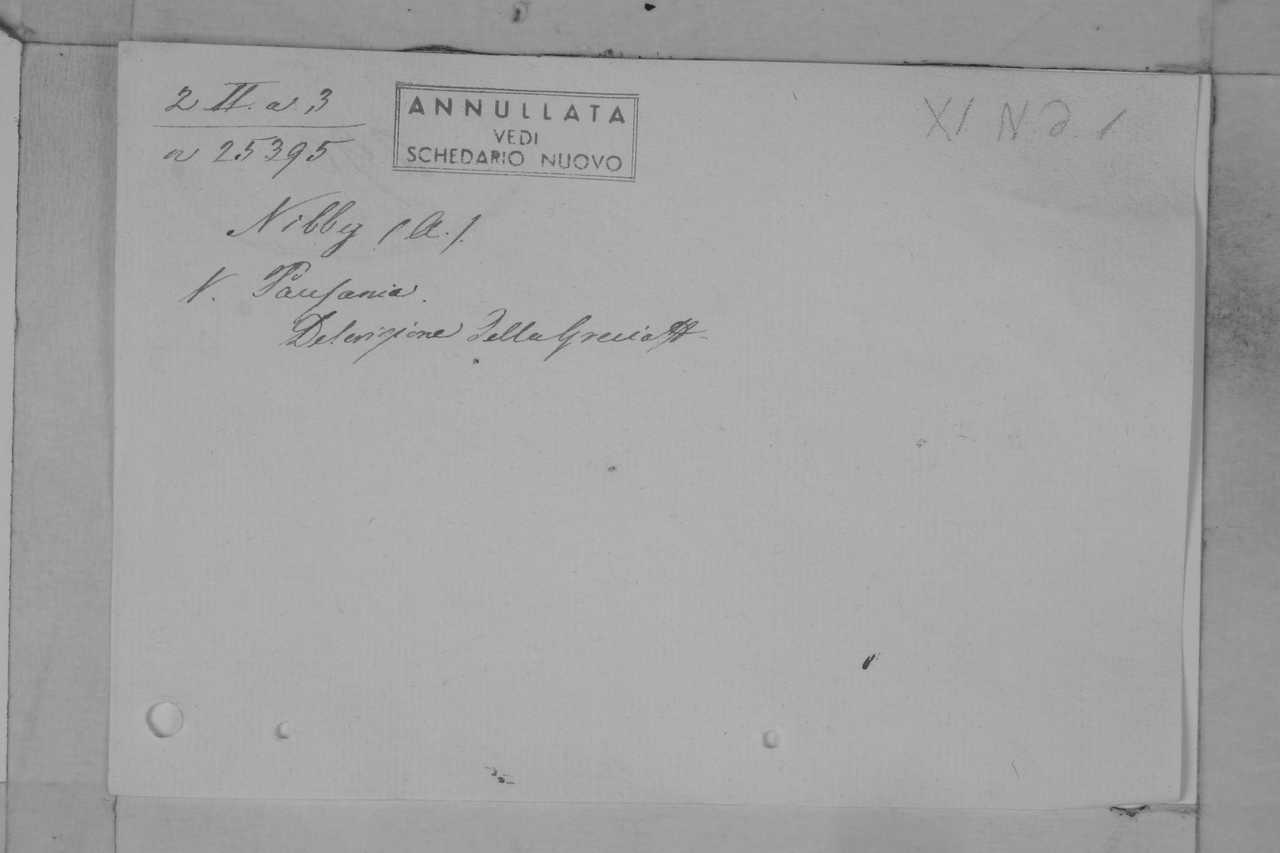 2 II. a. 3
a 25395
ANNULLATA
VEDI
SCHEDARIO NUOVO
XI N d. 1
Nibby (A.)
V. Pausania.
Descrizione della Grecia